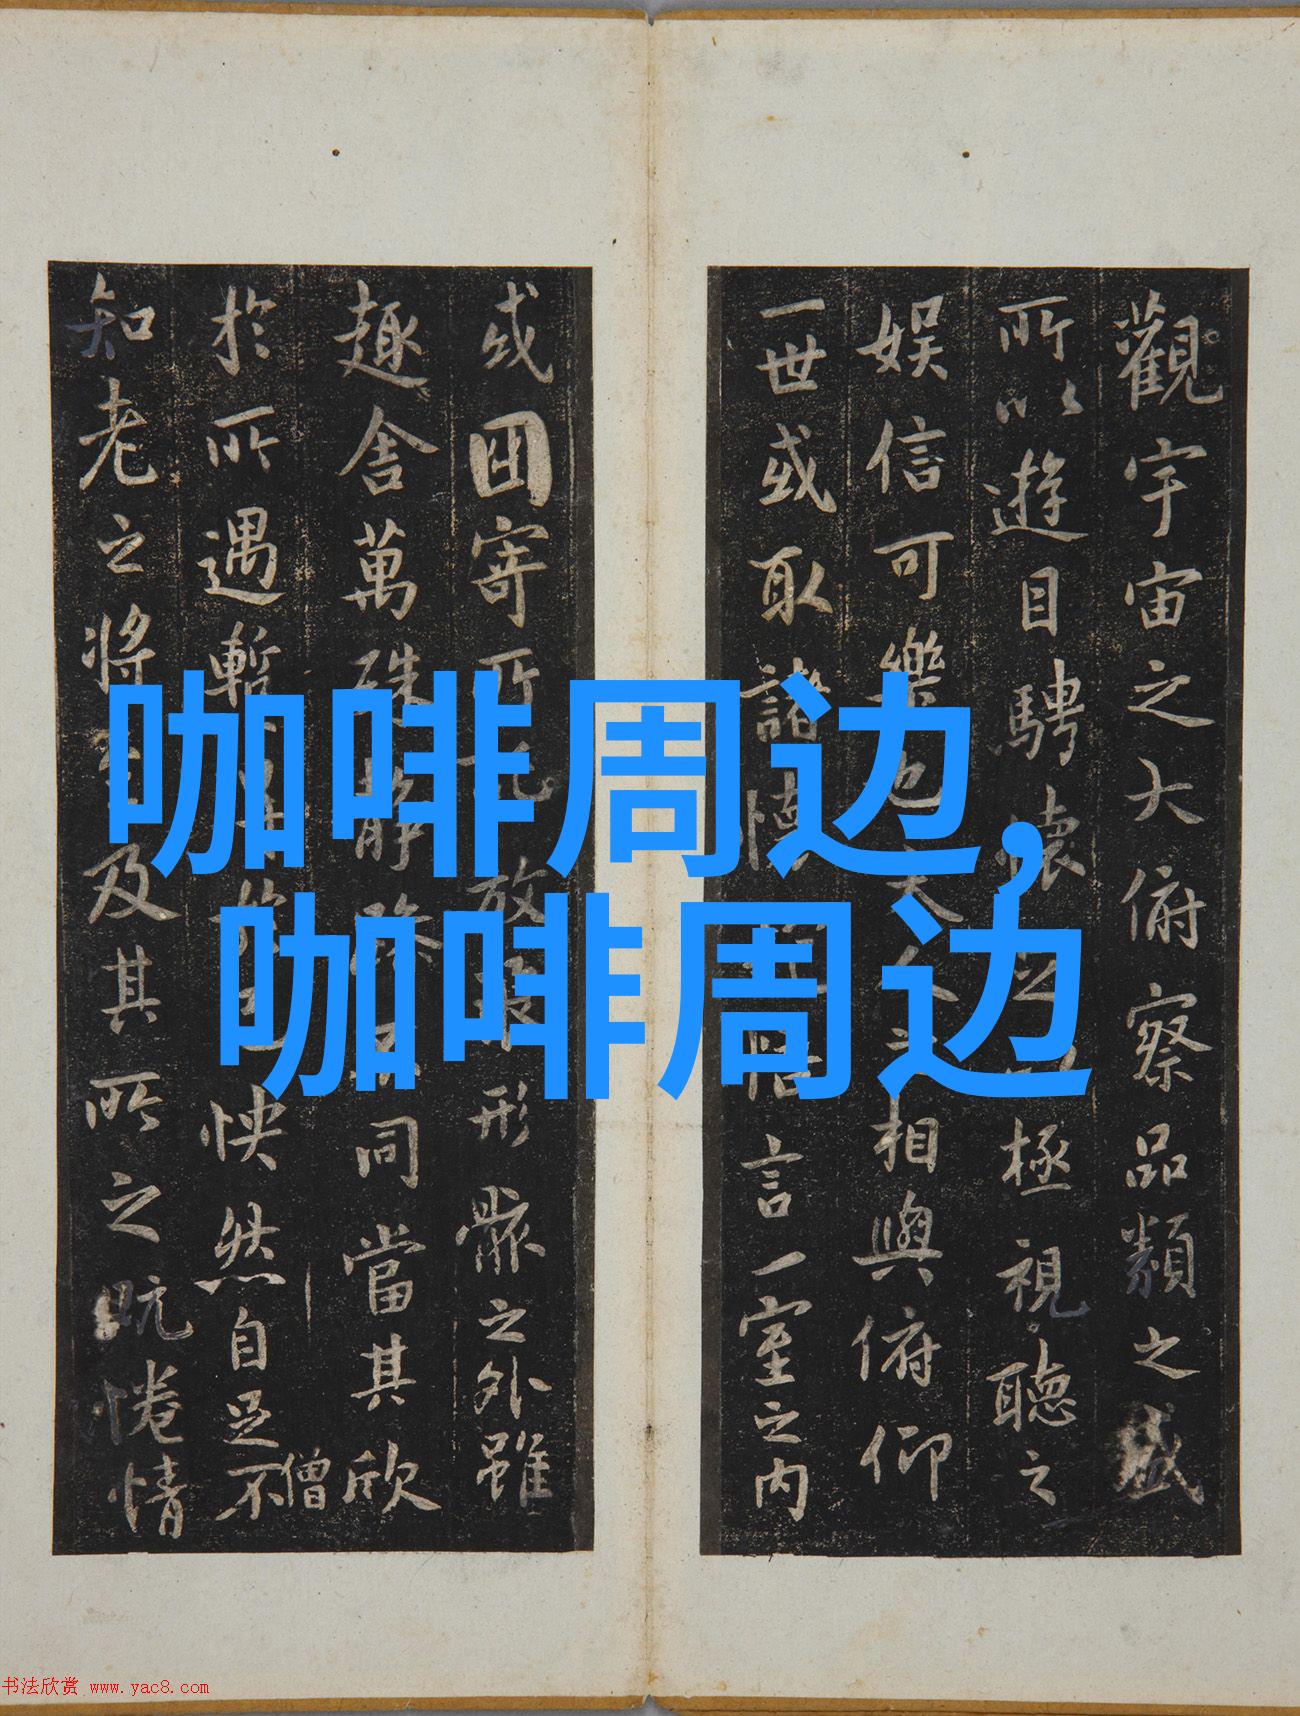 觀宇宙之大俯察品類之盛
所以遊目騁懷足以極視聽之
娛信可樂也夫人之相與俯仰
一世或取諸懷抱悟言一室之內
或因寄所託放浪形骸之外雖
趣舍萬殊靜躁不同當其欣
於所遇暫得於己怏然自足不
僧
知老之將至及其所之既惓情
咖啡周边,
咖啡周边
书法欣赏 www.yac8.com